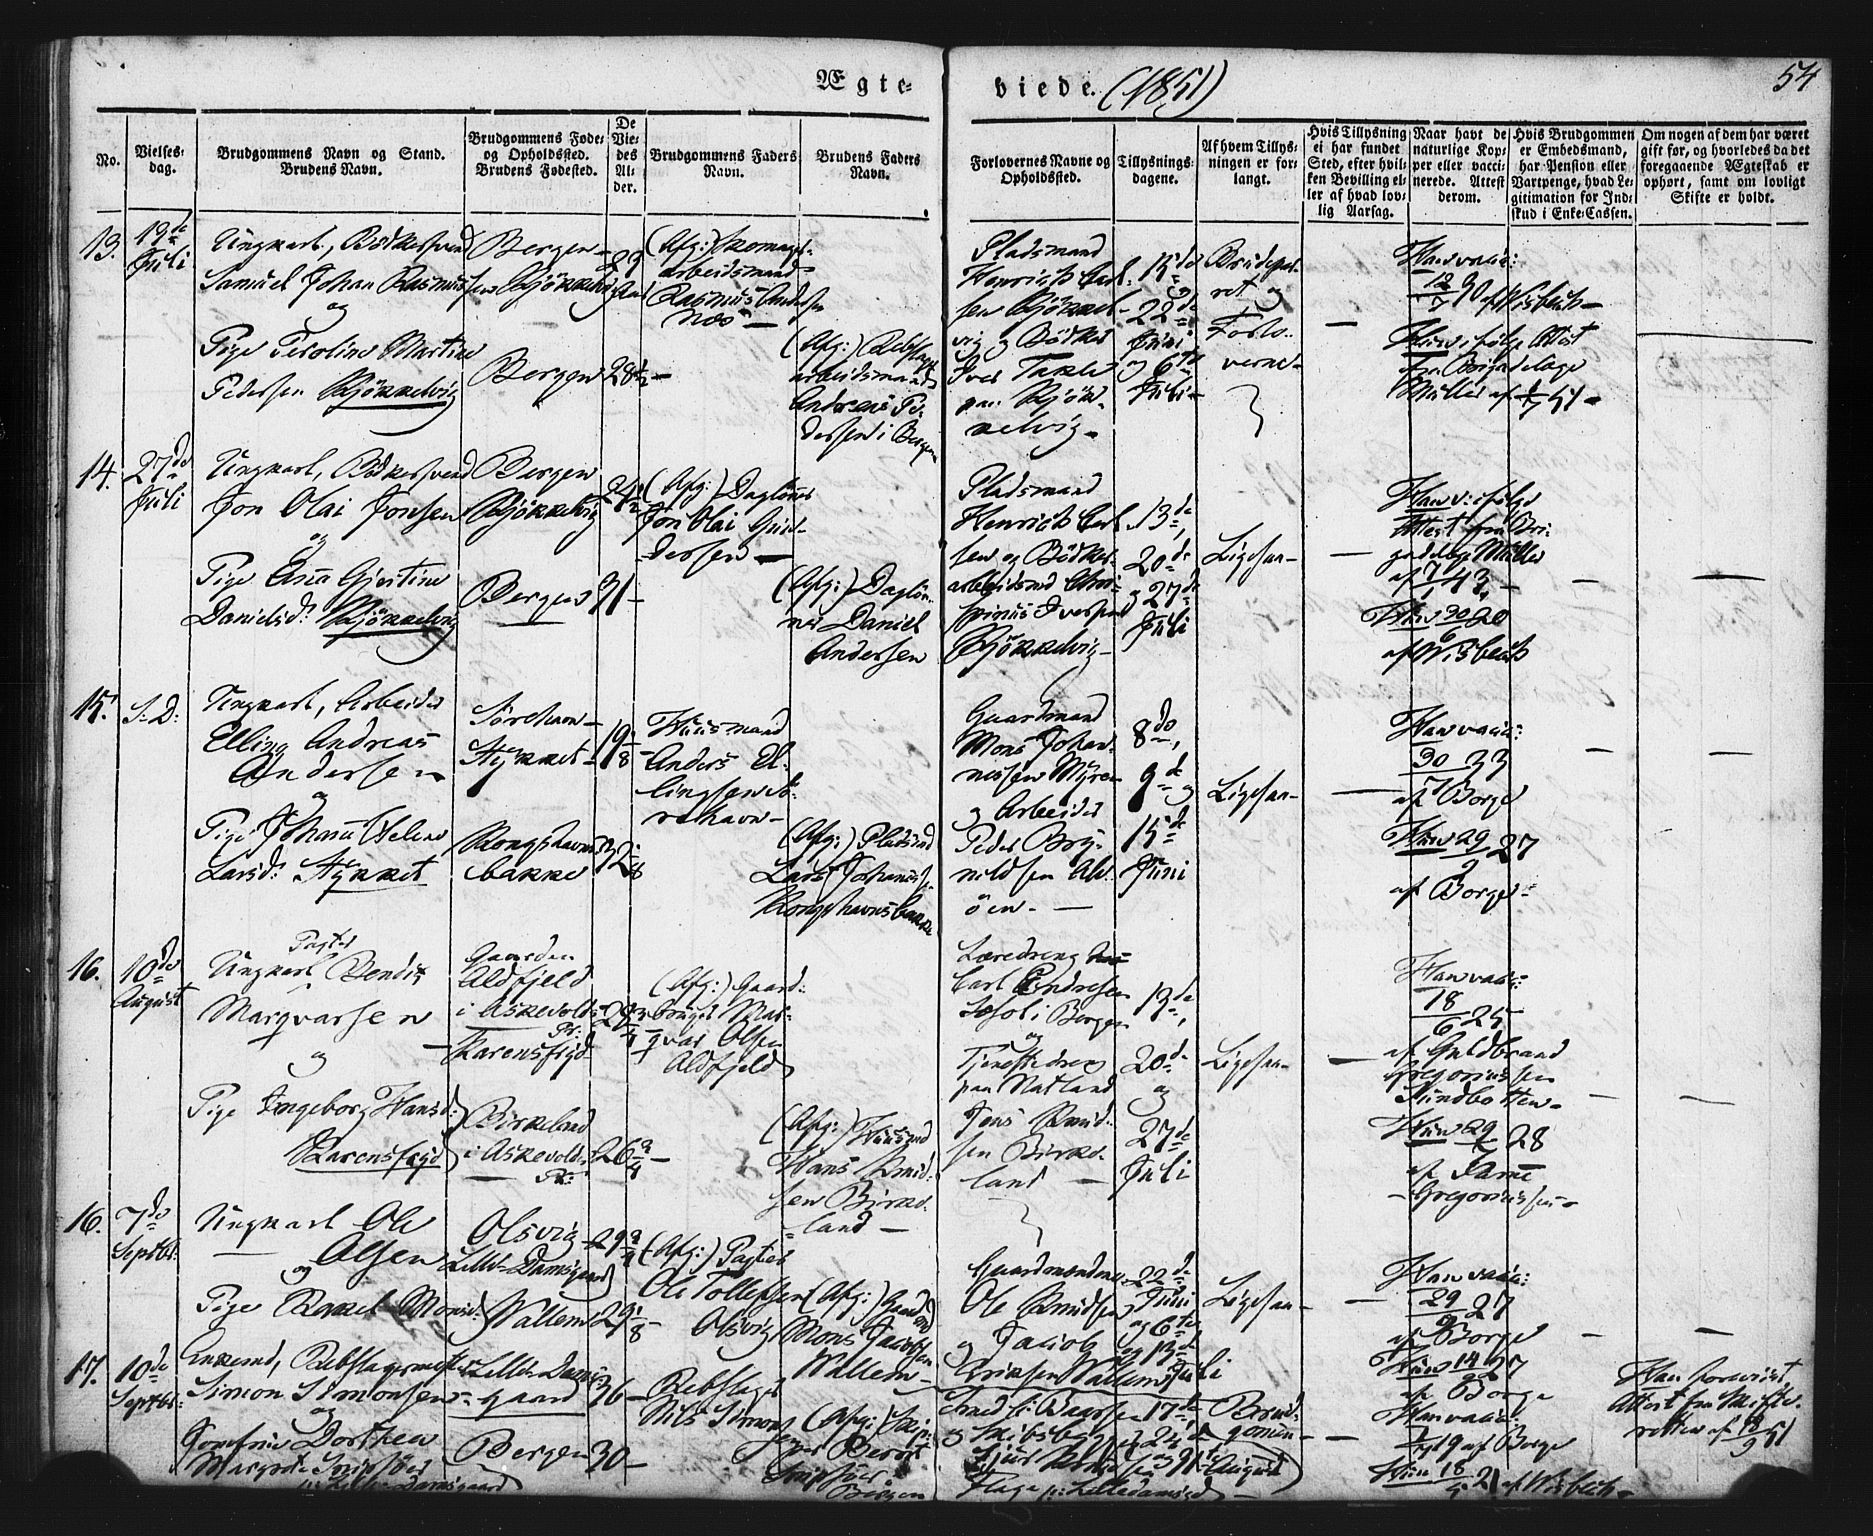 54
Ægte-viede. (1851)
No.
Vielses-
dag.
Brudgommens Navn og Stand.
Brudens Navn.
Brudgommens Føde-
og Opholdssted.
Brudens Fødested.
De
Vie-
des
Al-
der.
Brudgommens Faders
Navn.
Brudens Faders
Navn.
Forlovernes Navne og
Opholdssted.
Tillysnings-
dagene.
Af hvem Tillys-
ningen er for-
langt.
Hvis Tillysning
ei har fundet
Sted, efter hvil-
ken Bevilling el-
ler af hvad lov-
lig Aarsag.
Naar havt de
naturlige Kop-
per eller vacci-
nerede. Attest
derom.
Hvis Brudgommen
er Embedsmand,
har Pension eller
Vartpenge, hvad Le-
gitimation for Ind-
skud i Enke-Cassen.
Om nogen af dem har været
gift før, og hvorledes da det
foregaaende Ægteskab er
ophørt, samt om lovligt
Skifte er holdt.
13.
13de
Juli
Ungkarl, Bödkersvend
Samuel Johan Rasmussen
og
Pige Peroline Martine
Pedersen Kjökkelvig
Bergen
Kjökkelvig
Bergen
28½
(Afg:)
arbeidsmand
Rasmus Andersen
Næs
(Afg:) Rebslager
arbeidsmand
Andreas Pe-
dersen i Bergen
Pladsmand
Henrich Carl-
sen Kjökkel-
vig og Bödker
Iver
Kjök-
kelvig
15de
og
22de
Juni
og 6te
Juli
Brudepar-
ret og
Forlo-
verne
Han vacc:
af Wisbech
Hun ifölge Attest
fra Brigadelæge
Müller af 51
14.
27de
Juli
Ungkarl, Bödkersvend
Jon Olai Jonsen
og
Pige Ana Gjertine
Danielsd: Kjökkelvig
Bergen
Kjökkelvig
Bergen
31
(Afg:) Daglönner
Jon Olai Gun-
dersen
(Afg:) Daglön-
ner Daniel
Andersen
Pladsmand
Henrich Carl-
sen og Bödker-
arbeidsmd
Iversen
Kjökkelvig
13de,
20de
og 27de
Juli
Ligesaa
Han v: ifölge
Attest fra Bri-
gadelge Müller
af 43
Hun 20
af Wisbech
15.
S: D:
Ungkarl, Arbeider
Elling Andreas
Andersen
og
Pige Johanne Helene
Larsd: Hykket
Sörehavn
Hykket
Kongshavns
bakke
Huusmand
Anders El-
lingsen Sö-
rehavn
(Afg:) Pladsmd
Lars Johanness:
Kongshavnsbakke
Gaardmand
Mons Johan-
nessen Myren
og Arbeider
Peder Bry-
nildsen Alv-
öen
8de,
9de og
15de
Juni
Ligesaa
Han vacc:
30 33
af Borge
Hun 29 27
af Borge
16.
10de
August
Pagter
Ungkarl Bendix
Marqvarsen
og
Pige Ingeborg Hansd:
Karensfryd
Gaarden
Aldfjeld
i Askevolds
Pr:
Karensfryd
Birkeland
i Askevolds
Pr:
26
(Afg:) Gaard-
bruger Mar-
qvar Olsen
Aldfjeld
(Afg:) Huusmd
Hans Knud-
sen Birke-
land
Læredreng
Carl Endresen
i Bergen
og
Tjenestedreng
paa Natland
Jens Knud-
sen Birke-
land
13de,
20de
og
27de
Juli
Ligesaa
Han vacc:
18
6 25
af Guldbrand
Gregoriussen
Hun 29 28
af Samme
Gregoriussen
16.
7de
Septbr:
Ungkarl Ole
Olsen
og
Pige Rakel Monsd:
Olsvig
Lille Damsgaard
Wallem
(Afg:) Pagter
Ole Tollefsen
Olsvig
(Afg:) Gaardmd
Mons Jacobsen
Wallem
Gaardmændene
Ole Knudsen
og Jacob
Eriksen Wallem
22de
Juni
og 6te
og 13de
Juli
Ligesaa
Han vacc:
29 27
af Borge
Hun 14 27
af Borge
17.
10de
Septbr:
Enkemd, Rebslagermester
Simon Simonsen
og
Jomfrue Dorthea
Margrete
Lille Dams-
gaard
Bergen
36
30
Rebslager
Nils Simonsen
(Afg:) Skip-
per Berent
Bergen
17de,
24de
og 31te
August
Brud-
gommen
Han vacc:
19 af Borge
Hun 18 21 af Wisbech
Han foreviist
Attest fra Skifte-
retten af 51